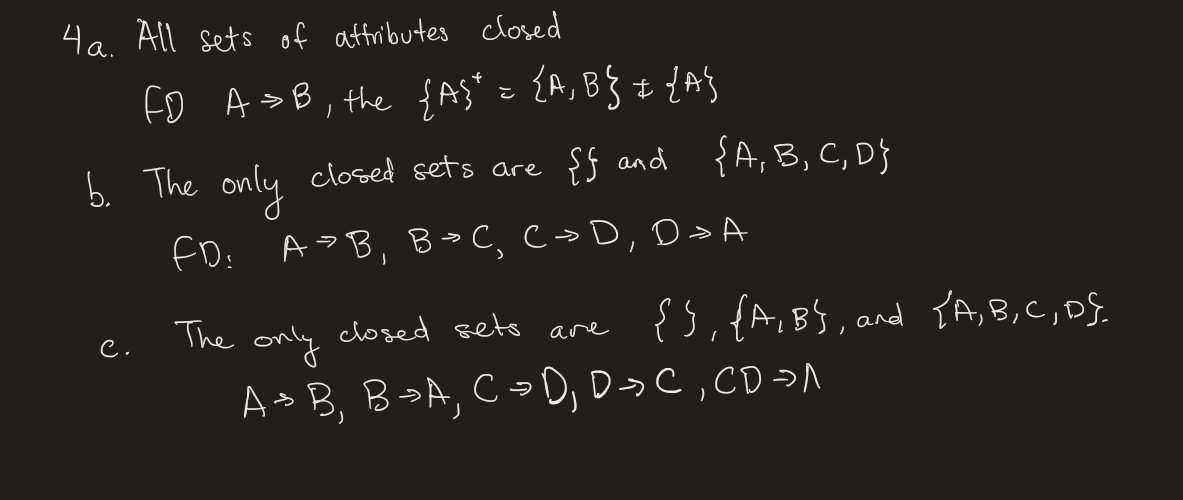 4a. All sets of attributes closed
FD A → B, the {A}⁺ = {A, B} ≠ {A}
b. The only closed sets are {} and {A, B, C, D}
FD: A → B, B → C, C → D, D → A
c. The only closed sets are { }, {A, B}, and {A, B, C, D}.
A → B, B → A, C → D, D → C, CD → A